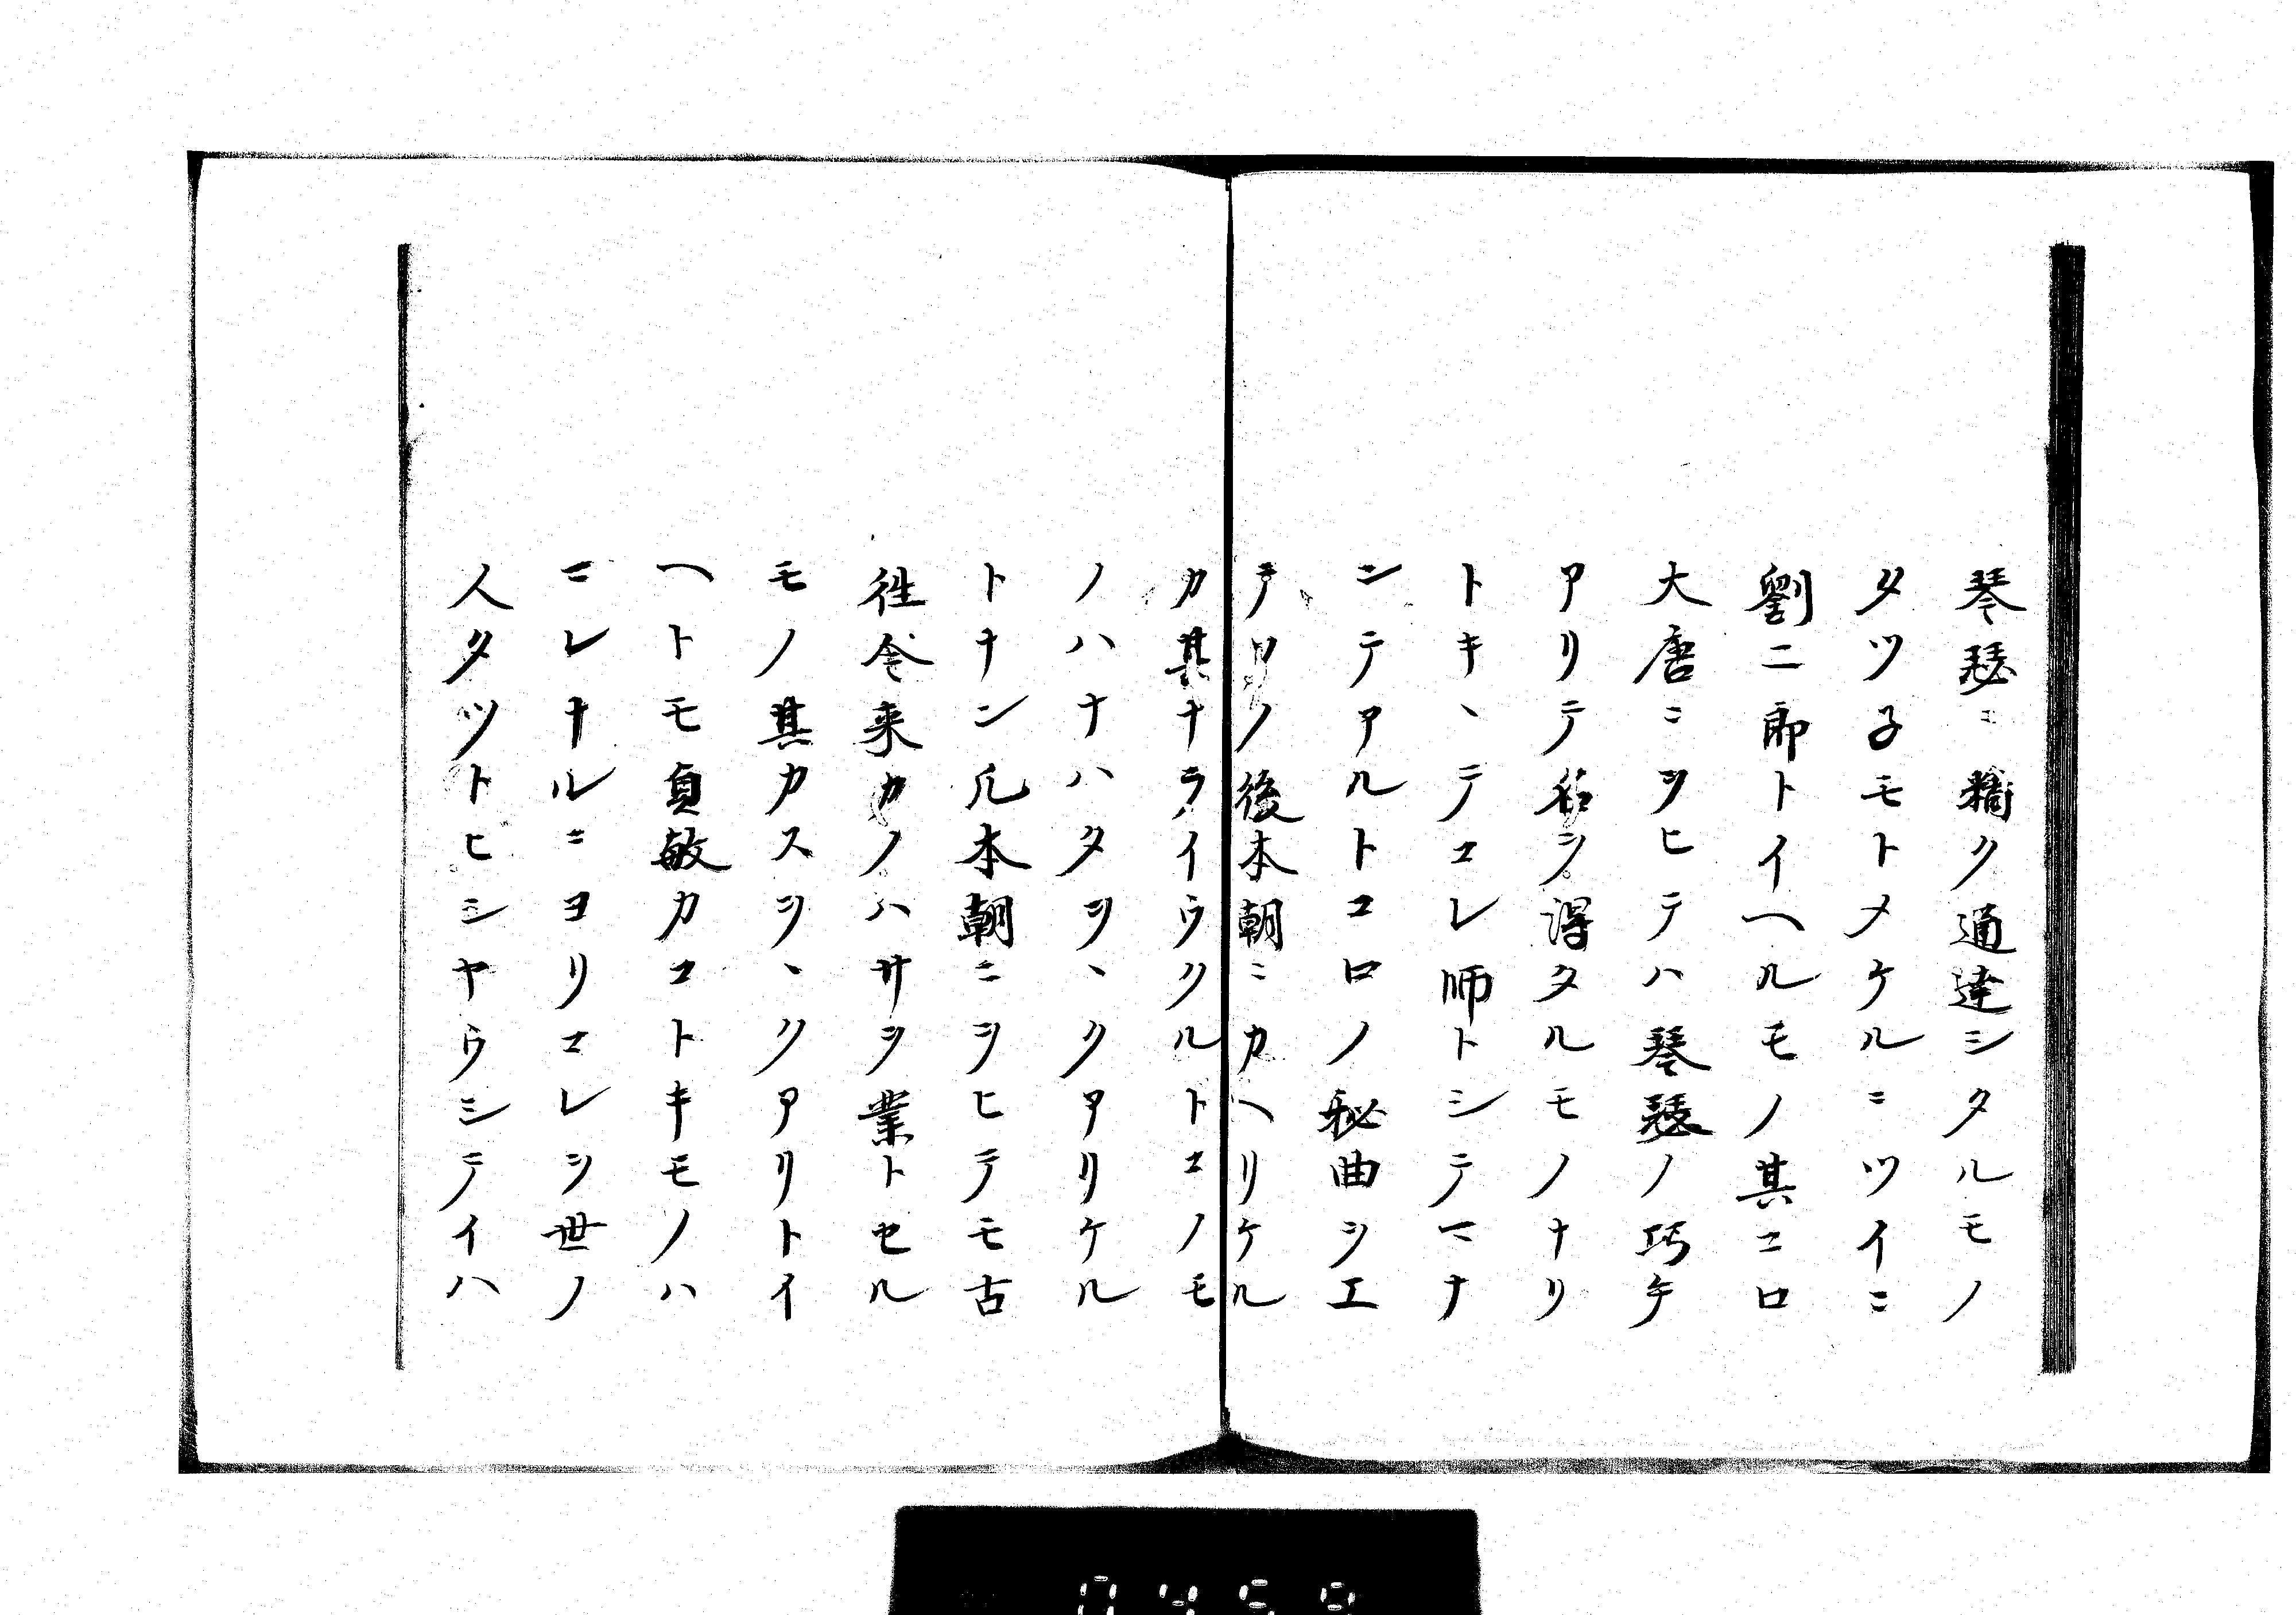 琴瑟ニ精ク通達シタルモノ
タツ子モトメケルニツイニ
劉二郎トイヘルモノ其コロ
大唐ニヲヒテハ琴瑟ノ巧手
アリテ名ヲ得タルモノナリ
トキヽテコレ師トシテマナ
ンテアルトコロノ秘曲ヲエ
テソノ後本朝ニカヘリケル
カ其ナライウクルトコノモ
ノハナハタヲヽクアリケル
トナン凡本朝ニヲヒテモ古
徃今来カノハサヲ業トセル
モノ其カスヲヽクアリトイ
ヘトモ貞敏カコトキモノハ
ニレナルニヨリコレヲ世ノ
人タツトヒシヤウシテイハ
0459